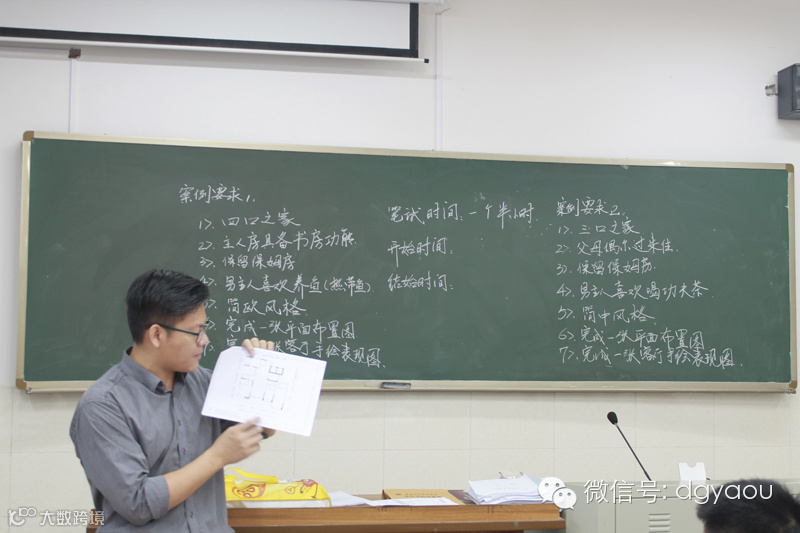 案例要求1.
1>. 四口之家
2>. 主人房具备书房功能.
3>. 保留保姆房
4>. 男主人喜欢养鱼(热带鱼).
5>. 简欧风格
完成一张平面布置图
张客厅手绘表现图.
笔试时间: 一个半小时.
开始时间:
结始时间:
案例要求2.
1>. 三口之家
2>. 父母偶尔过来住.
3>. 保留保姆房.
4>. 男主人喜欢喝功夫茶.
5>. 简中风格.
6>. 完成一张平面布置图
7>. 完成一张客厅手绘表现图.
微信号: dgyaou
大数跨境